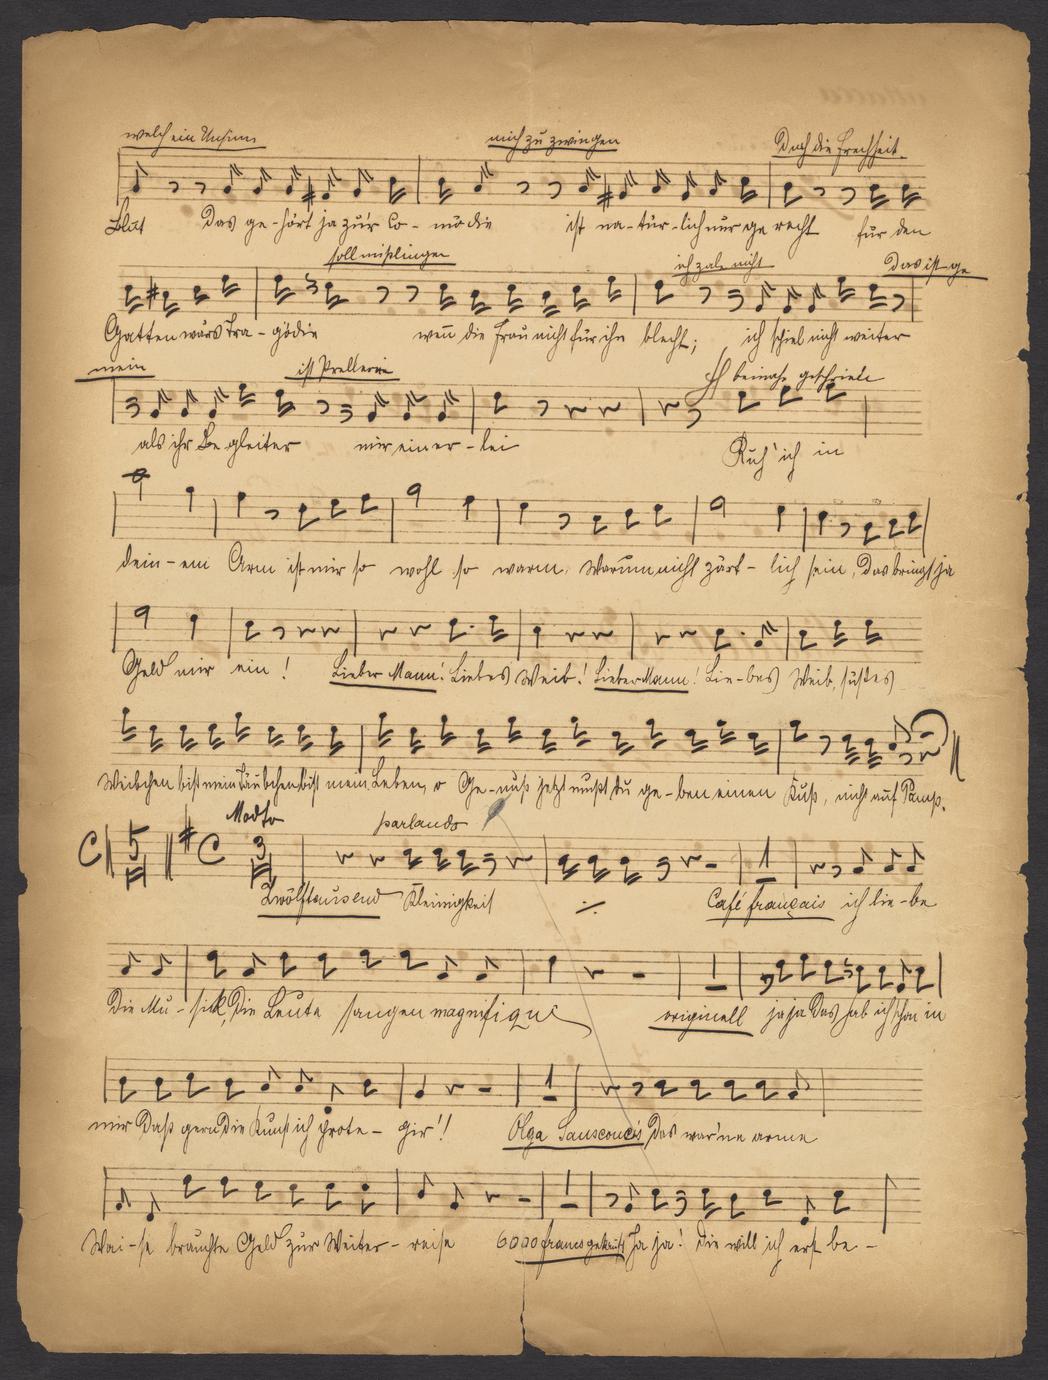 welch ein Unsinn mich zu zwingen Doch die Frechheit
Das ge-hört ja zur Co-mödie ist na-tür-lich nur ge recht für den
soll mißlingen ich zale nicht das ist ge
Gatten wärs Tra-gödie weñ die Frau nicht für ihn blecht; ich schiel nicht weiter
mein ist Prellerei beinahe geschrieen
als ihr Be gleiter mir einer-lei Ruh' ich in
dein-em Arm ist mir so wohl so warm. Warum nicht zärt-lich sein, Das bringt ja
Geld mir ein! Lieber Mann! Liebes Weib! Lieber Mann! Lie-bes Weib, süßes
Weibchen bist mein Täubchen, bist mein Leben, o Ge-nuß jetzt mußt du ge-ben einen Kuß, nicht auf Pump.
Modto parlando
C 5 C 3
Zwölftausend Kleinigkeit Café français ich lie-be
Die Mu-sick, Die Leute sangen magnifique originell ja ja Das hab ich schon in
mir Daß gern Die Kunst ich prote-gir'!! Olga Sanscoucis Das war 'ne arme
Wai-se brauchte Geld zur Weiter-reise 6000 francs gekauft Ja ja! Die will ich erst be-